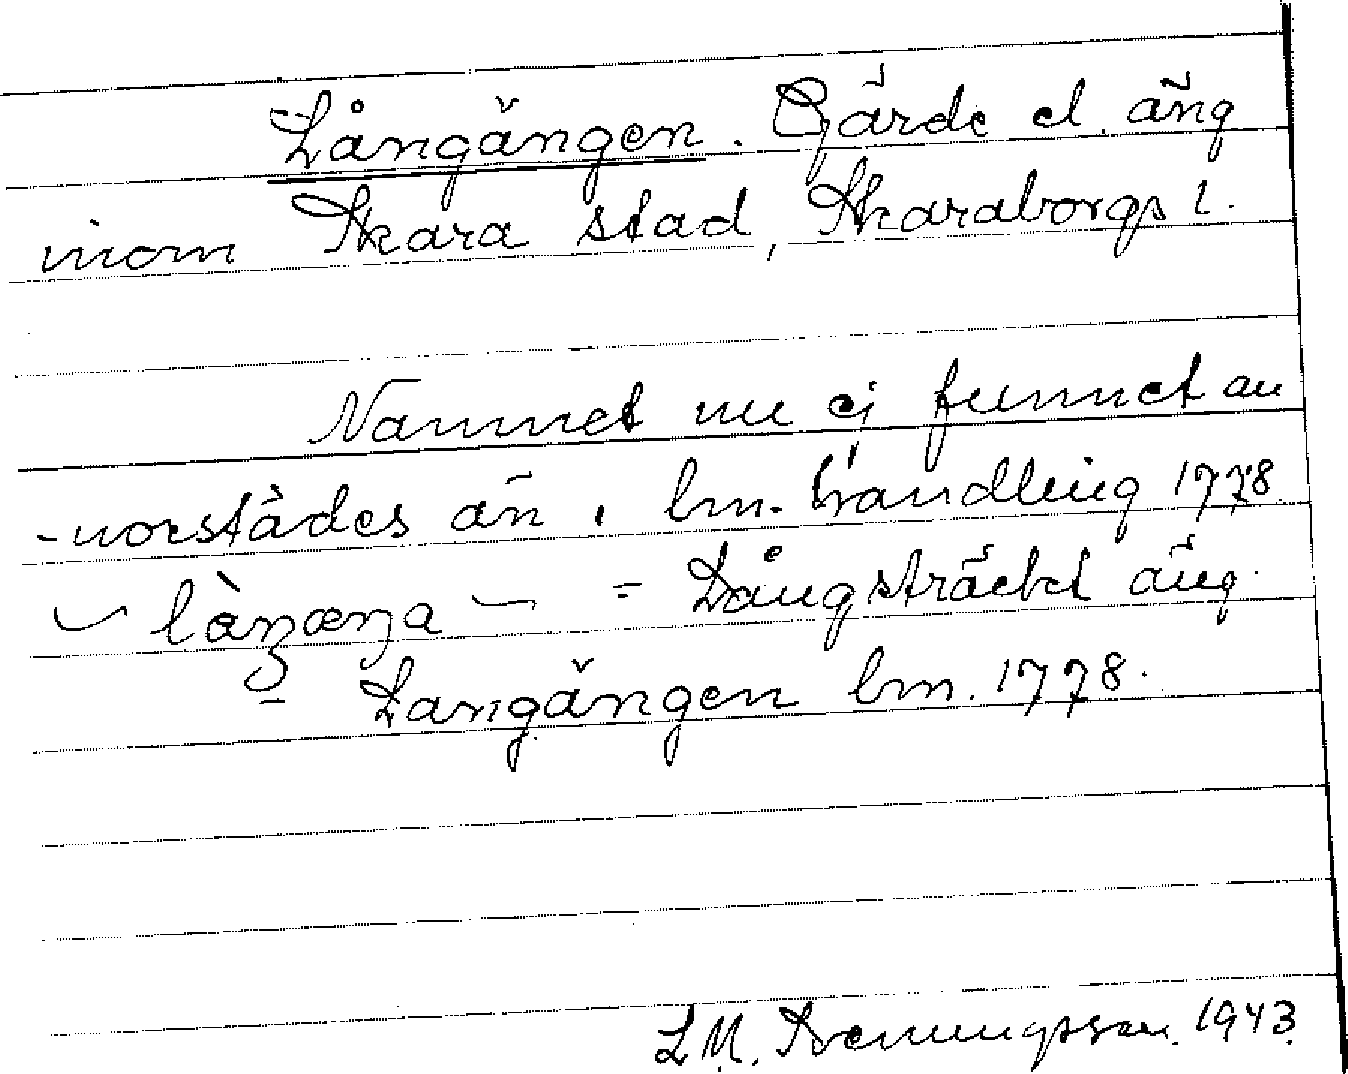 Långången. Gärde el. äng
inom Skara stad, Skaraborgs l.
Namnet nu ej funnet an-
-norstädes än i lm. handling 1778
= Långsträckt äng.
= Langången lm. 1778.
L.M. 1943.